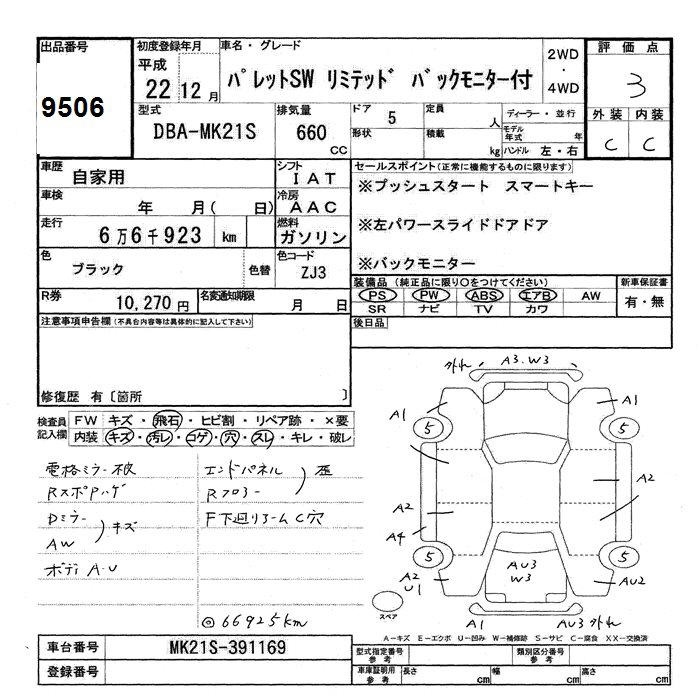 出品番号
9506
初度登録年月
平成
22 12 月
車名・グレード
パレットSW リミテッド バックモニター付
2WD
・
4WD
評価点
3
外装 内装
C C
型式
DBA-MK21S
排気量
660
CC
ドア 5
形状
定員 人
積載 kg
ディーラー・並行
モデル年式 年
ハンドル 左・右
車歴
自家用
シフト
IAT
車検
年 月( 日)
冷房
AAC
走行
6万6千923 km
燃料
ガソリン
色
ブラック
色替
色コード
ZJ3
R券
10,270円
名変通知期限
月 日
セールスポイント(正常に機能するものに限ります)
※プッシュスタート スマートキー
※左パワースライドドアドア
※バックモニター
装備品 (純正品に限り○をつけてください)
PS PW ABS エアB AW
SR ナビ TV カワ
新車保証書
有・無
後日品
注意事項申告欄(不具合内容等は具体的に記入して下さい)
修復歴 有〔箇所 〕
検査員
記入欄
FW キズ・飛石・ヒビ割・リペア跡・×要
内装 キズ・汚レ・コゲ・穴・スレ・キレ・破レ
電格ミラー不良
RスポPハゲ
Dミラー
AW
キズ
ボディA・U
エンドパネル
Rフロアー
歪
F下廻りアームC穴
◎66925km
外れ A3.W3
A1 A1
5 5
A2
A2
A4
5 5
AU3
W3
A2
U1
AU2
A1 AU3 外れ
スペア
A-キズ E-エクボ U-凹み W-補修跡 S-サビ C-腐食 XX-交換済
車台番号
MK21S-391169
登録番号
型式指定番号
参考
類別区分番号
参考
車庫証明用
参考
長さ cm
幅 cm
高さ cm